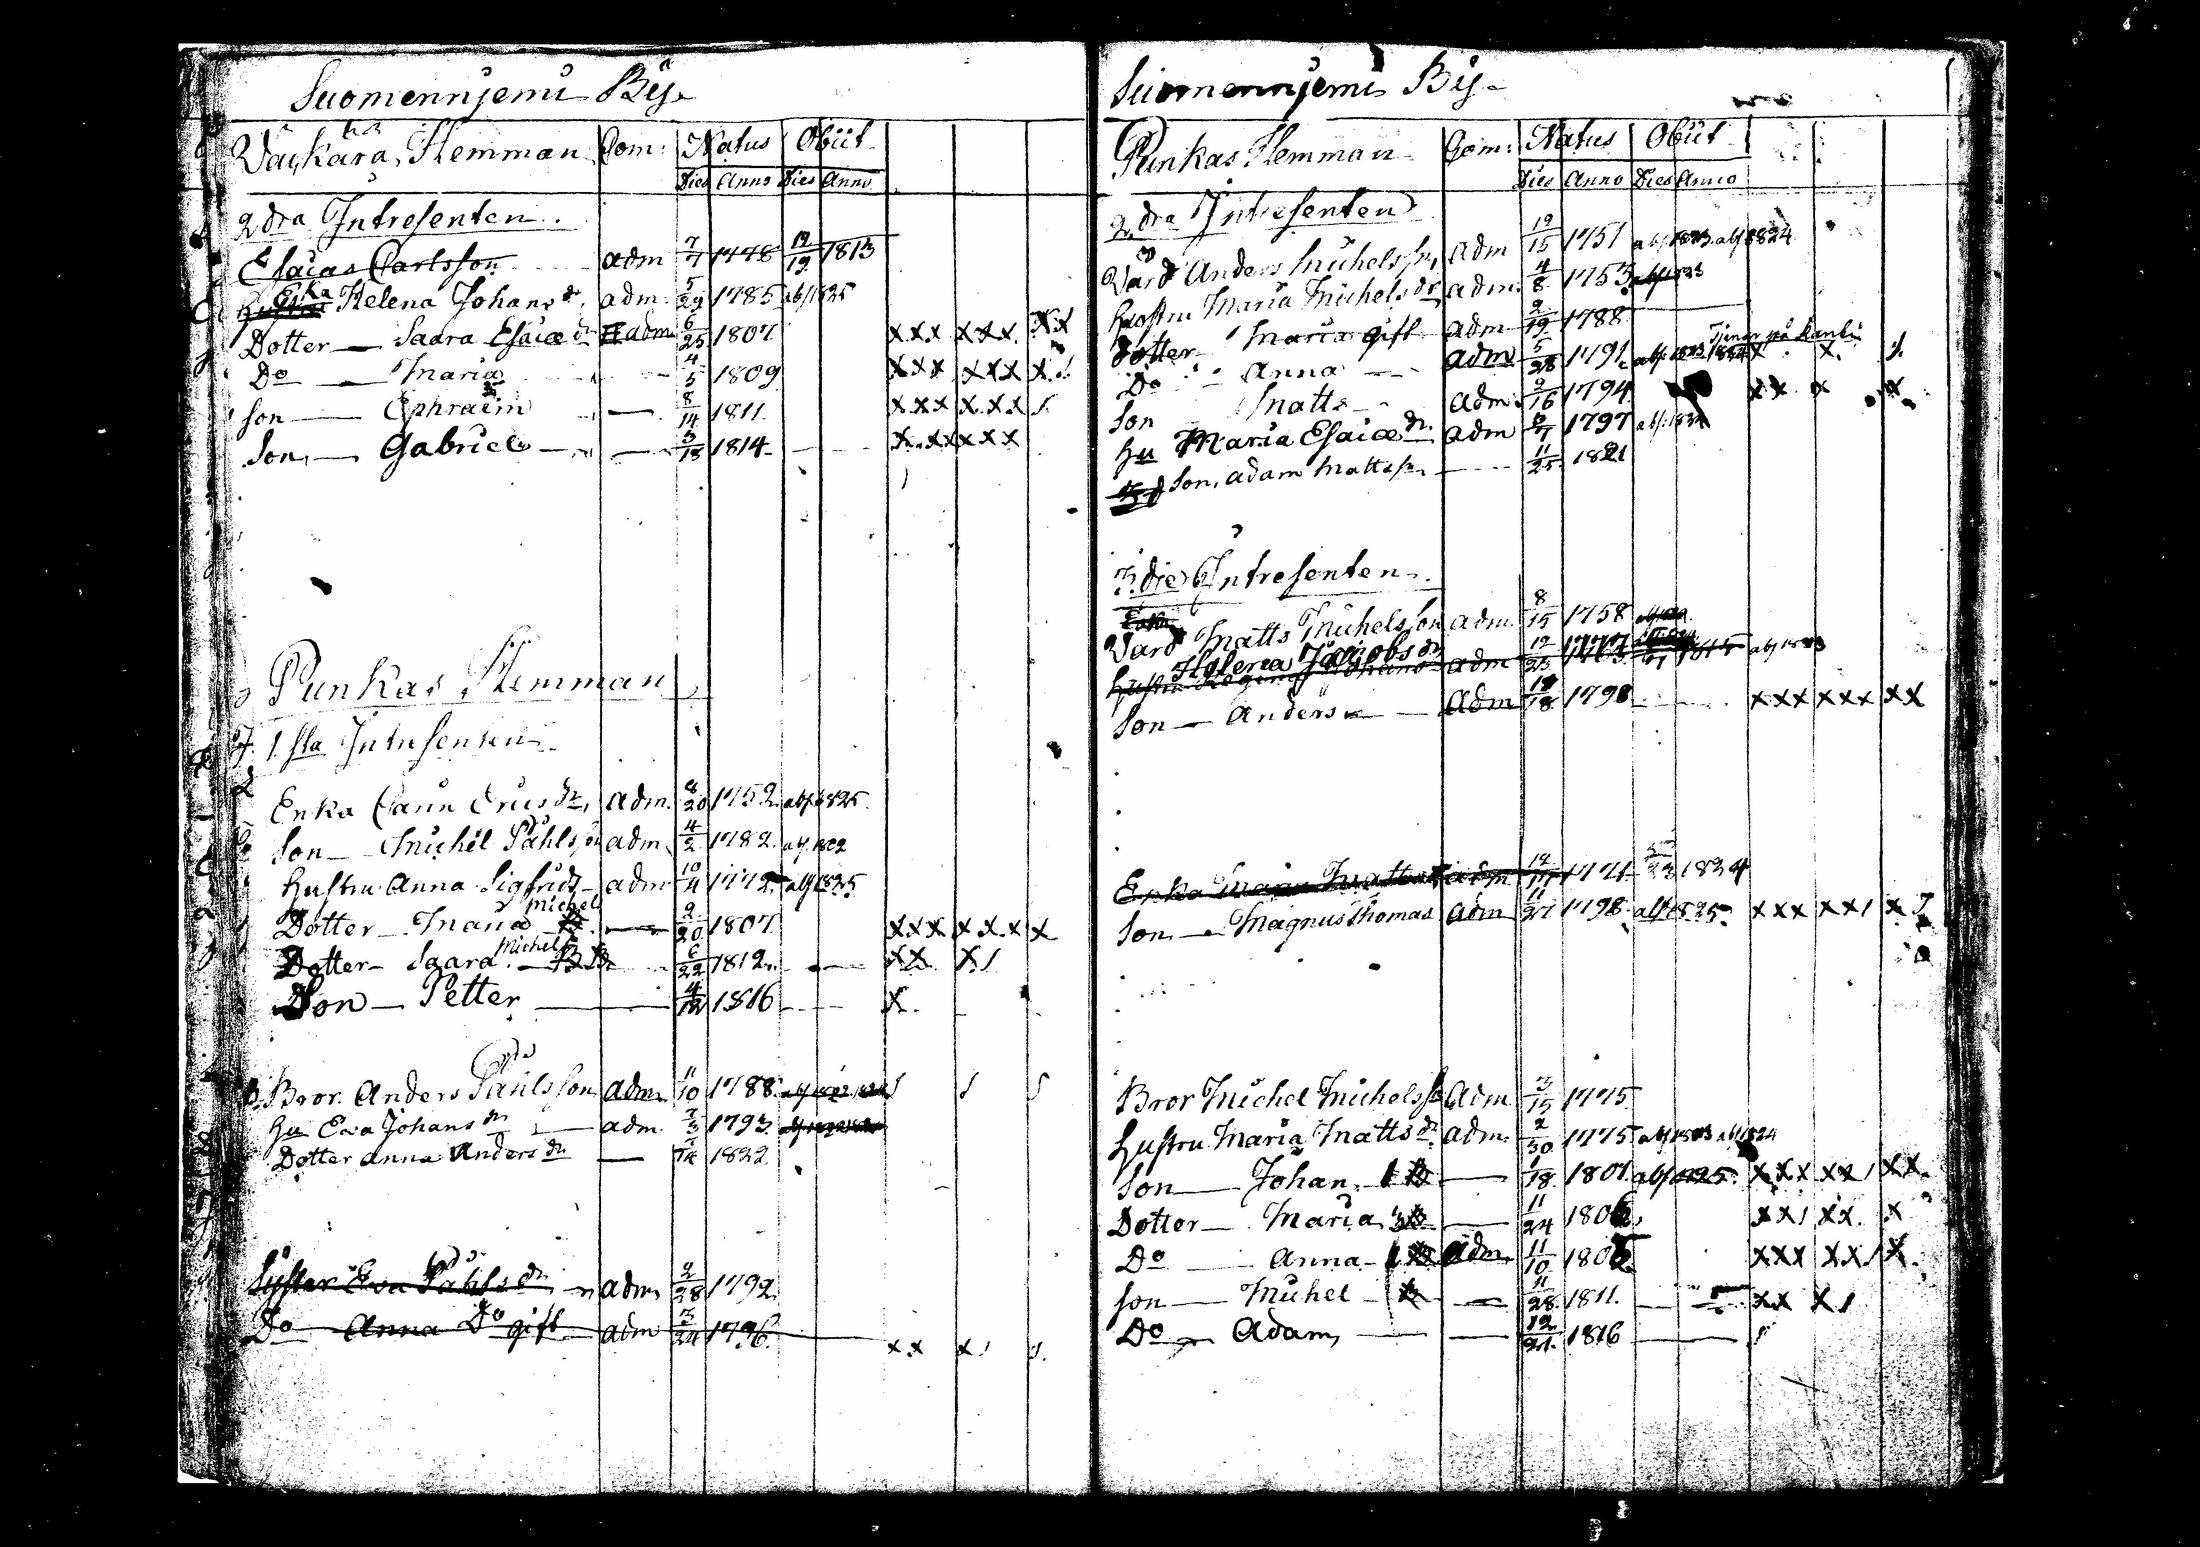 Suomennjemi By.
Hemman Com: Natus Obiit
Dies Anno Dies Anno
2dra Intresenten.
Esaias Carlsson adm 7/7 1778 12/19 1813
Enka Helena Johans dr. adm. 5/29 1785 abs. 1825
Dotter — Saara Esaiæ dr adm 6/25 1807 xxx xxx xx
Do — Maria — 4/5 1809 xxx xxx x
Son — Ephraim — 8/14 1811 xxx xxx
Son — Gabriel — — 3/18 1814 — xxxxxx
Punkas Hemman
1sta Intresenten
Enka Carin Erics dr, adm. 8/20 1752 abs. 1825
Son — Michel Påhlsson adm. 4/2 1782 abs. 1822
Hustru Anna Sigfrids — adm 10/4 1772 abs 1825
Michels
Dotter — Maria — 9/20 1807 xxx xxx x
Michels
Dotter — Saara — 6/22 1812 — xx x/
Son — Petter — 4/12 1816 — x
Bror. Anders Påhlsson adm. 11/10 1788
Hu Eva Johans dr — adm. 7/3 1793
Dotter Anna Anders dr — 7/14 1822
Syster Eva Påhls dr adm 2/28 1792
Do Anna Do gift adm 3/24 1796 xx x/
Suomennjemi By.
Punkas Hemman Com: Natus Obiit
Dies Anno Dies Anno
2dra Intresenten
Värd Anders Michelsson adm 12/15 1751 abs. 1823. abs 1824
Hustru Maria Michels dr adm. 4/8 1753
Dotter Maria gift adm 2/19 1788
Tjenar på
Do — Anna — adm 5/28 1791 x x
Son Matts — adm. 9/16 1794 xx x x
Hu Maria Esaiæ dr. adm 1797
Son, Adam Mattsson — 11/25 1821
3die Intresenten.
Värd Matts Michelsson adm. 8/15 1758
Helena Jacobs dr
Hustru Regina Johans adm 1777
Son — Anders — adm 1798 — xxx xxx xx
Enka Maria Matts adm 1771 1824
Son — Magnus Thomas adm 1798 abs 1825 xxx xx/ x
Bror Michel Michelsson adm 3/15 1775
Hustru Maria Matts dr. adm. 2/30 1775 abs 1823 abs 1824
Son — Johan — 1/18 1801 abs 1825 xxx xx/ xx
Dotter — Maria — 11/24 180 xx/ xx x
Do — Anna — adm 11/10 180 xxx xx/ x
Son — Michel — 11/28 1811. — xx x/
Do — Adam — — 12/21 1816 — /